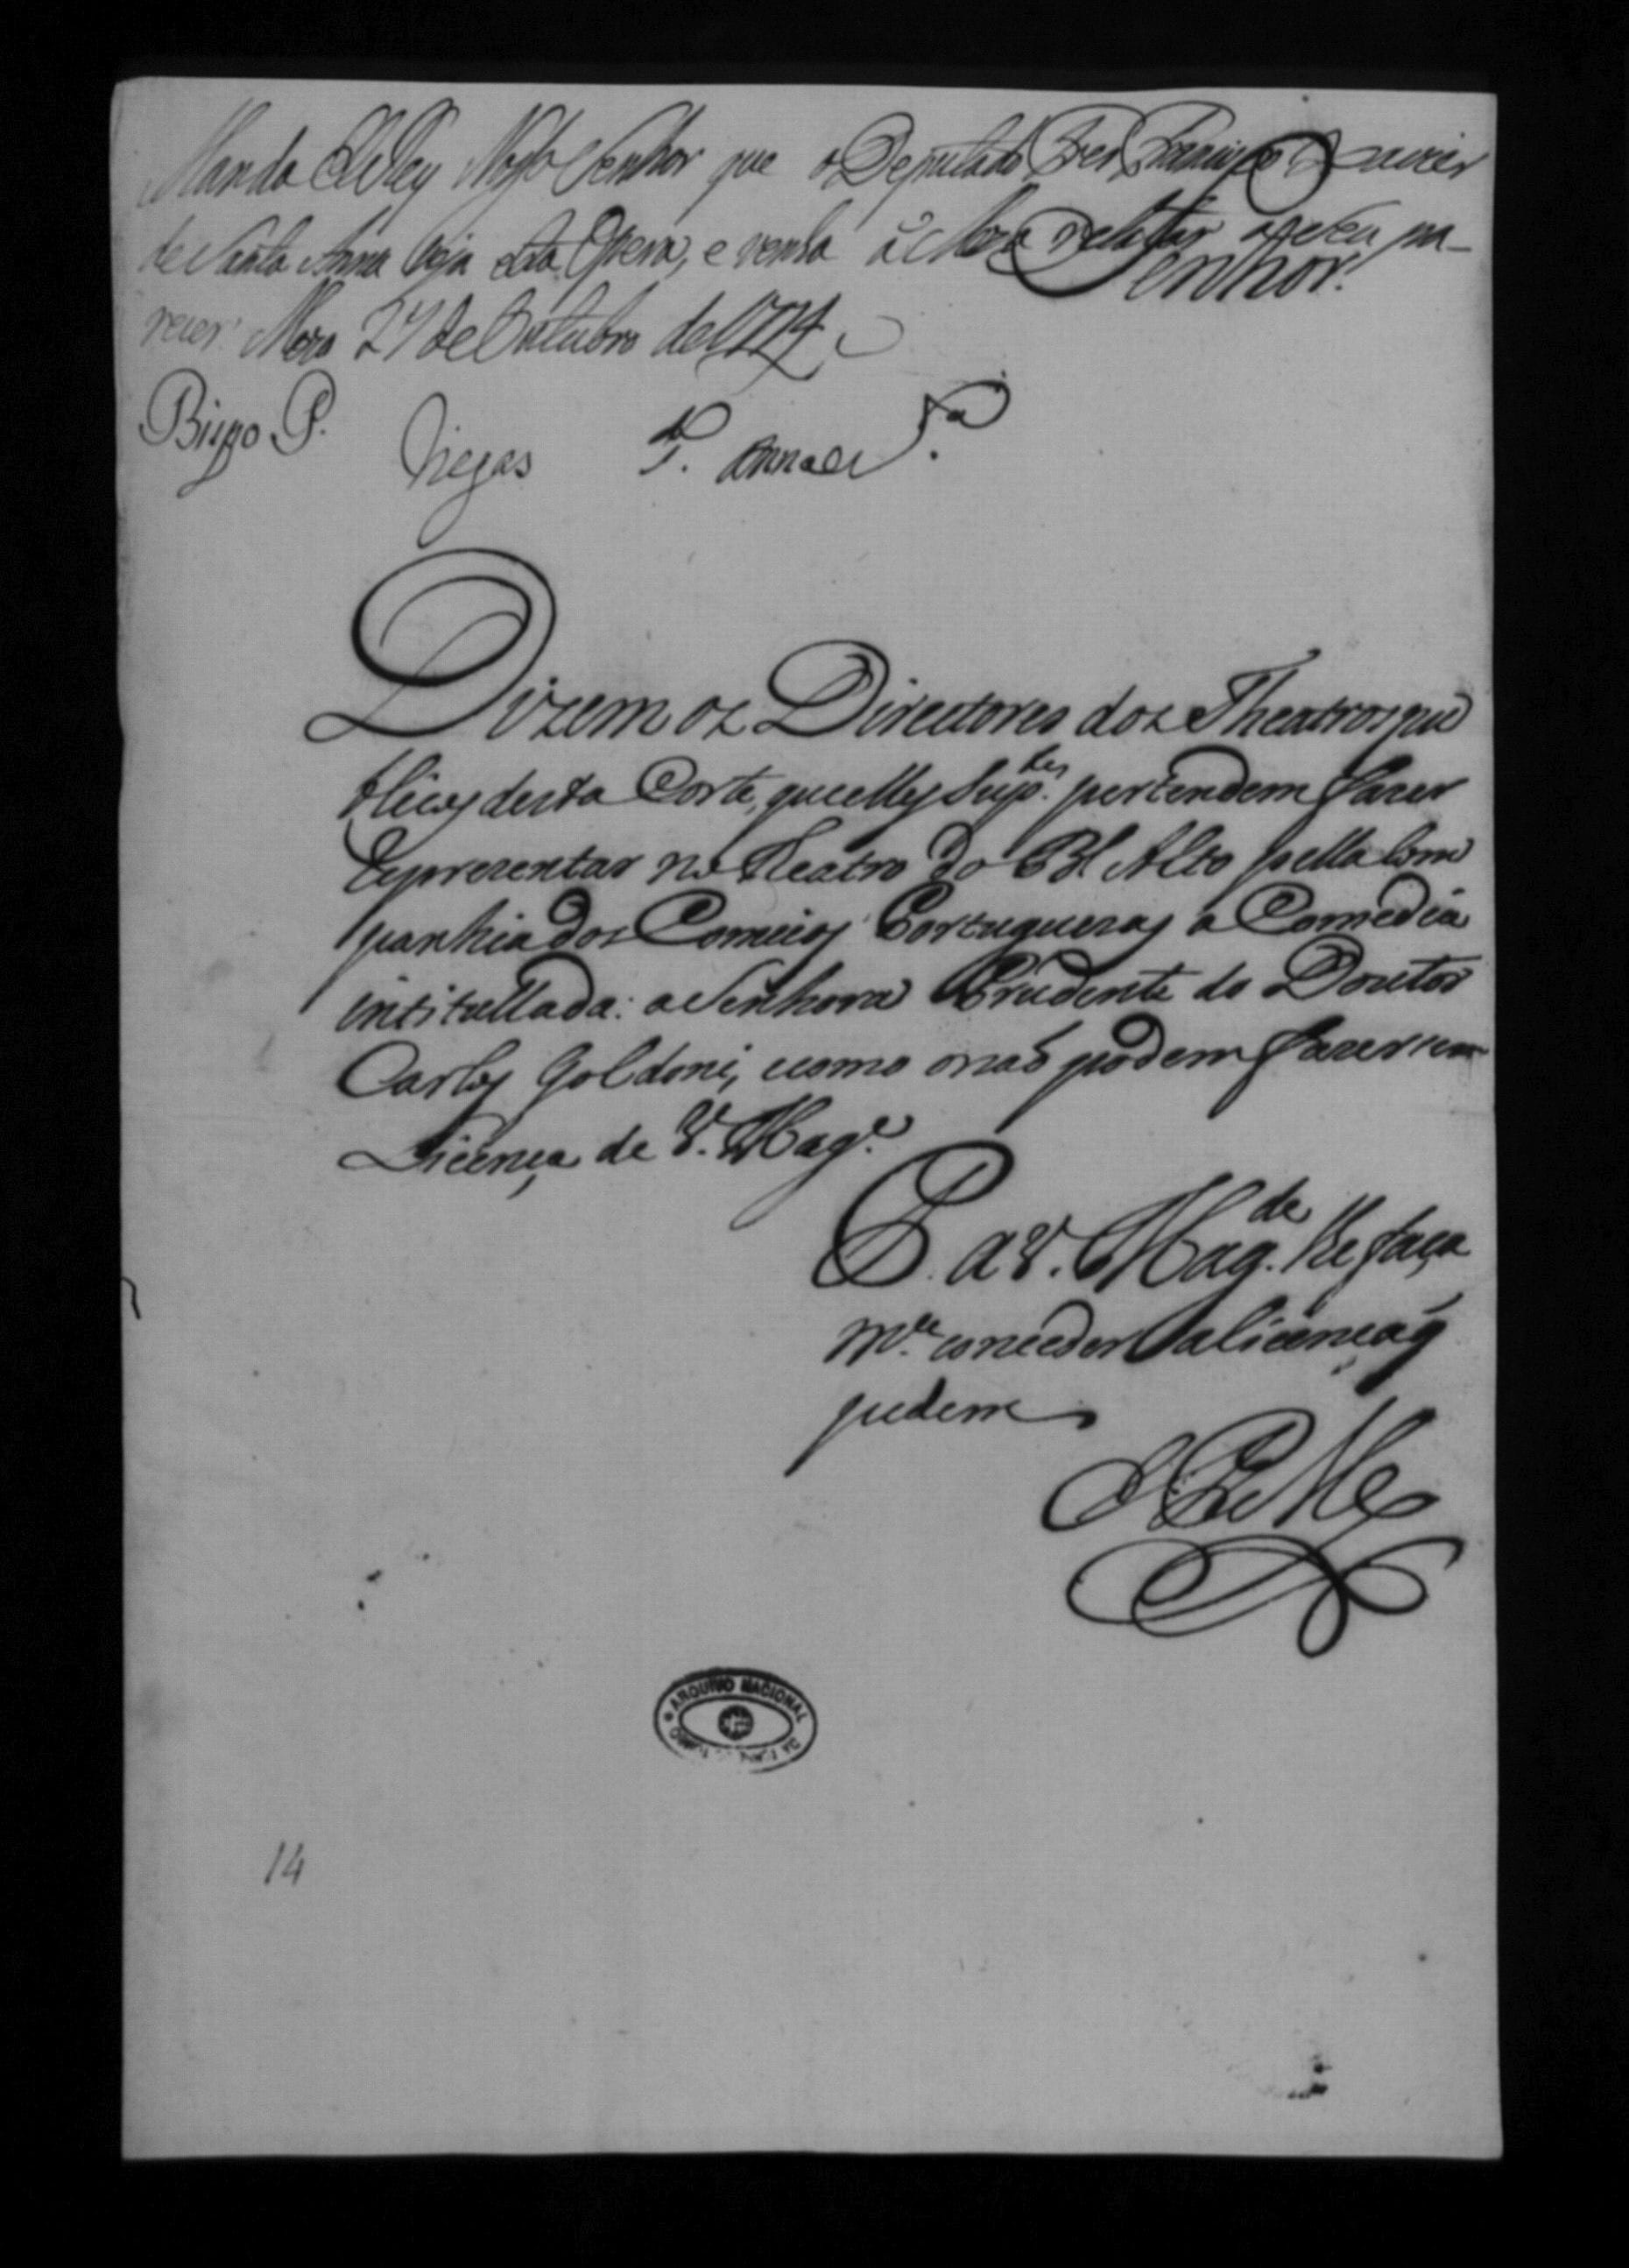 Manda ElRey Nosso Senhor que o Deputado Frei Francisco Xavier
de Santa Anna veja esta Opera, e venha à Meza relatar o seu pa-
recer. Meza 27 de Outubro de 1774
Bispo P. Viegas
Senhor.
Dizem os Directores dos Theatros pu
blicos desta Corte, que elles Sup.tes pertendem fazer
reprezentar no Teatro do B.º Alto pella Com
panhia dos Comicos Portuguezes a Comedia
intitullada: a Senhora Prudente do Doutor
Carlos Goldoni, e como o naõ podem fazer sem
Licença de V. Mag.e
P. a V. Mag.de lhe faça
m.ce conceder a licença q̃
pedem
E R M.ce
ARQUIVO NACIONAL
DA TORRE DO TOMBO
14